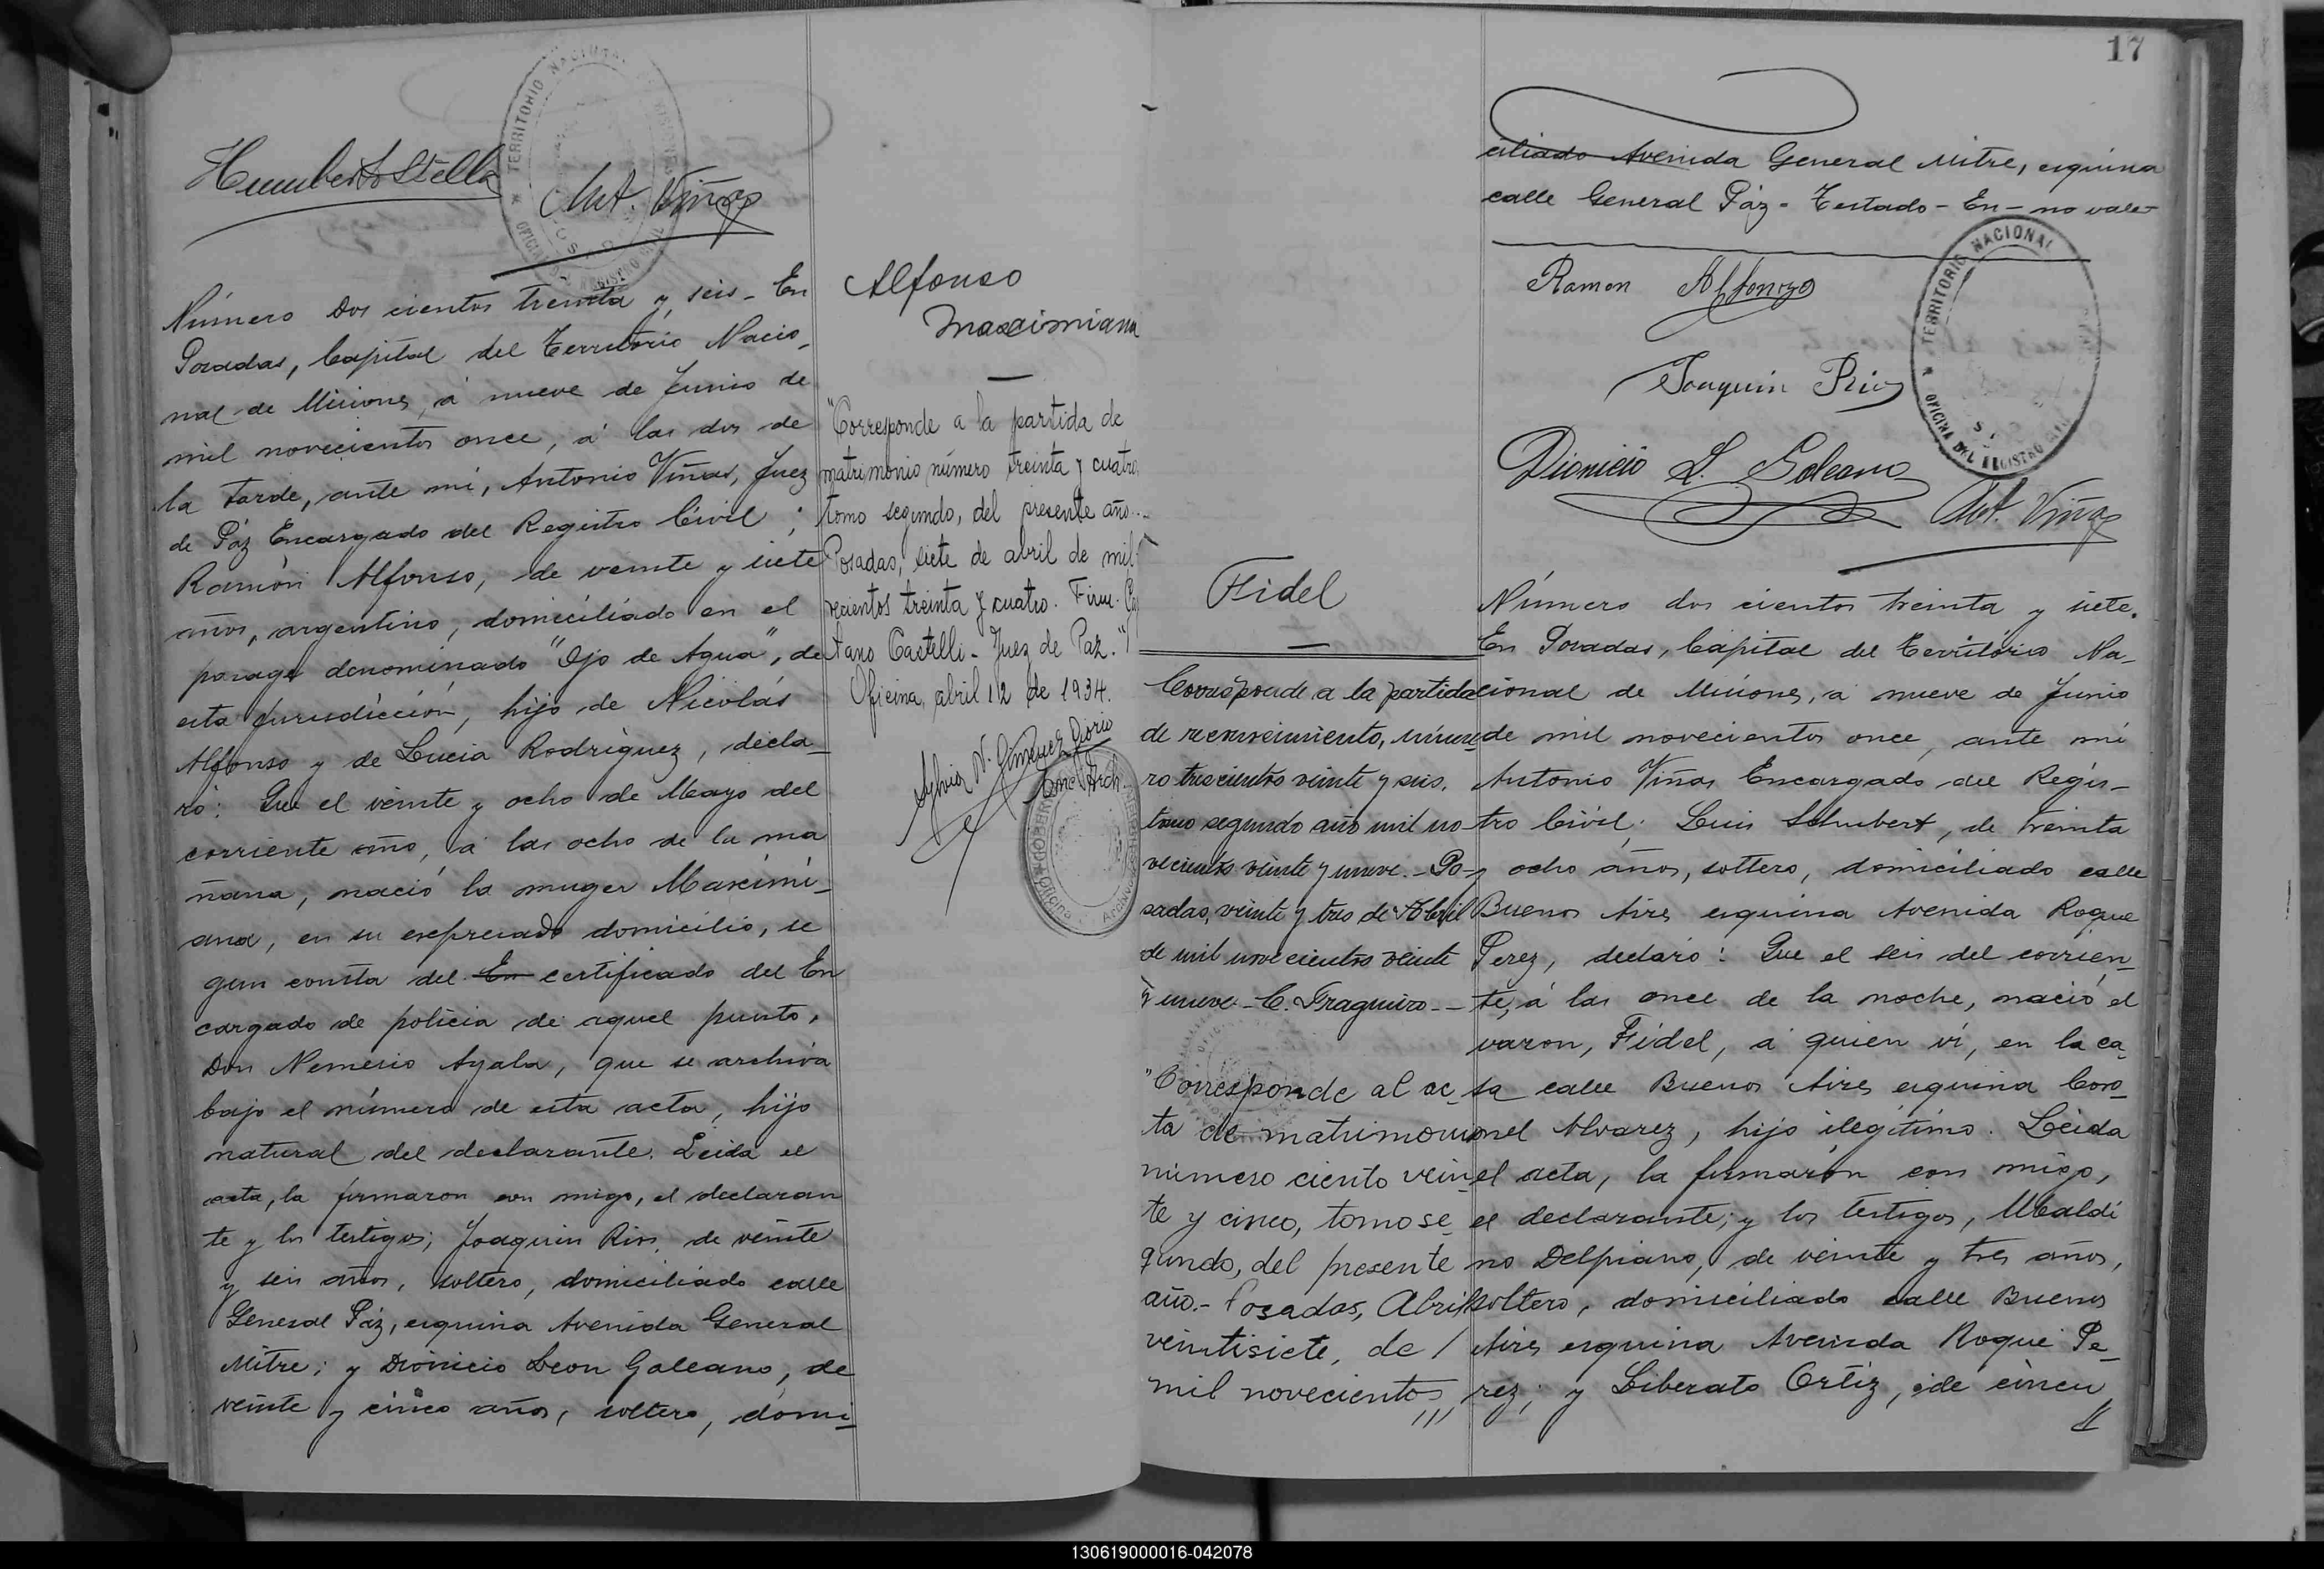 Humberto Stella
Ant. Viñas
TERRITORIO NACIONAL
OFICINA DEL REGISTRO CIVIL
Número Dos cientos treinta y seis - En
Posadas, Capital del Territorio Nacio-
nal de Misiones, á nueve de Junio de
mil novecientos once, á las dos de
la tarde, ante mi, Antonio Viñas, Juez
de Páz Encargado del Registro Civil;
Ramón Alfonso, de veinte y siete
años, argentino, domiciliado en el
parage denominado "Ojo de Agua", de
esta jurisdicción, hijo de Nicolás
Alfonso y de Lucia Rodriguez, decla-
ró: Que el veinte y ocho de Mayo del
corriente año, á las ocho de la ma
ñana, nació la muger Maximi-
ana, en su expresado domicilio, se
gun consta del En certificado del En
cargado de policia de aquel punto,
Don Nemesio Ayala, que se archiva
bajo el número de esta acta, hijo
natural del declarante. Leida el
acta, la firmaron con migo, el declaran
te y los testigos; Joaquin Rios, de veinte
y seis años, soltero, domiciliado calle
General Páz, esquina Avenida General
Mitre; y Dionicio Leon Galeano, de
veinte y cinco años, soltero, domi-
Alfonso
Maximiana
"Corresponde a la partida de
matrimonio número treinta y cuatro
tomo segundo, del presente año.-
Posadas, siete de abril de mil
vecientos treinta y cuatro. Firm.
tano Castelli - Juez de Paz."
Oficina, abril 12 de 1934.
Sylvia N. Gimenez
Enc. Arch.
17
ciliado Avenida General Mitre, esquina
calle General Páz - Testado - En - no vale
Ramon Alfonzo
TERRITORIO NACIONAL
OFICINA DEL REGISTRO CIVIL
Joaquin Rios
Dionicio L. Galeano
Ant. Viñas
Fidel
Corresponde a la partida
de reconocimiento, núme
ro trescientos veinte y seis,
tomo segundo año mil no
vecientos veinte y nueve. - Po-
sadas, veinte y tres de Abril
de mil novecientos veinte
y nueve - C. Fragueiro. -
"Corresponde al ac-
ta de matrimonio
número ciento vein
te y cinco, tomo se-
gundo, del presente
año.- Posadas, Abril
veintisiete, de /
mil novecientos,,,
Número dos cientos treinta y siete.
En Posadas, Capital del Territorio Na-
cional de Misiones, á nueve de Junio
de mil novecientos once, ante mi
Antonio Viñas Encargado del Regis-
tro Civil. Luis Schubert, de treinta
y ocho años, soltero, domiciliado calle
Buenos Aires esquina Avenida Roque
Perez, declaró: Que el seis del corrien-
te, á las once de la noche, nació el
varon, Fidel, á quien ví, en la ca-
sa calle Buenos Aires esquina Coro-
nel Alvarez, hijo ilegítimo. Leida
el acta, la firmarón con migo,
el declarante; y los testigos, Ubaldi
no Delpiano, de veinte y tres años,
soltero, domiciliado calle Buenos
Aires esquina Avenida Roque Pe-
rez; y Liberato Ortiz, de cincu
130619000016-042078